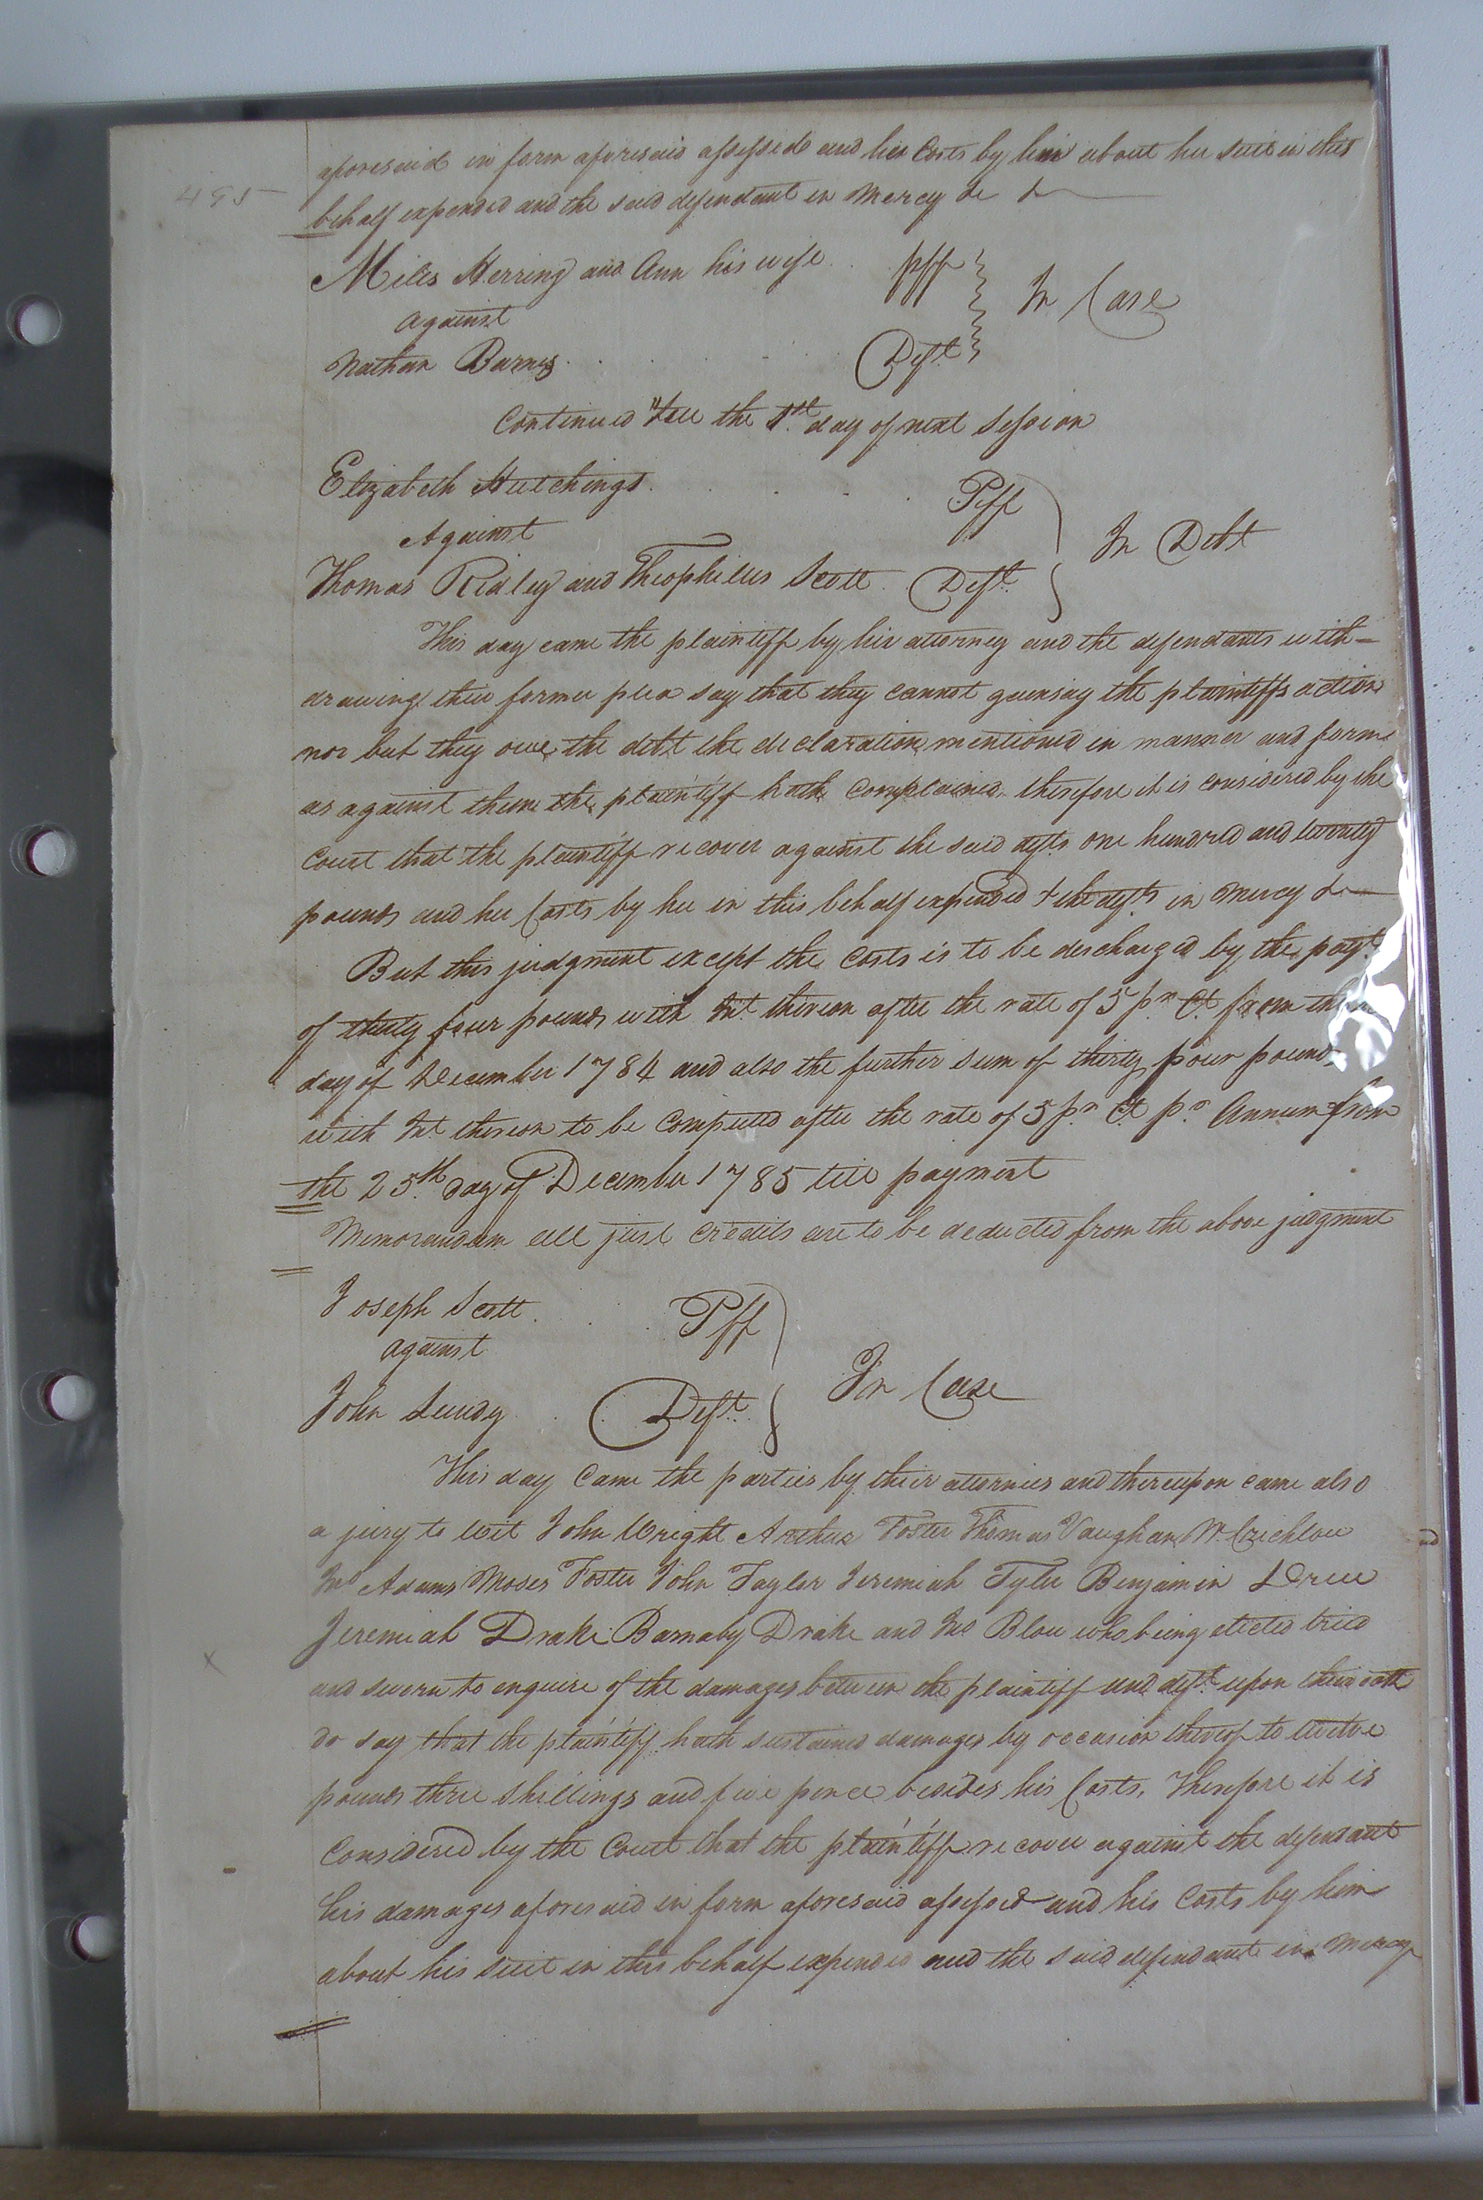 495
aforesaid in form aforesaid assessed and her Costs by him about her suit in this
behalf expended and the said defendant in Mercy &c &
Miles Herring and Ann his wife pff
against
In Case
Nathan Barnes Deft
Continued till the 1st day of next Session
Elizabeth Hutchings Pff
Against
In Debt
Thomas Ridley and Theophilus Scott Deft
This day came the plaintiff by her attorney and the defendants with-
drawing their former plea say that they cannot gainsay the plaintiffs action
nor but they owe the debt the declaration mentioned in manner and form
as against them the plaintiff hath Complained therefore it is considered by the
Court that the plaintiff recover against the said defts one hundred and twenty
pounds and her Costs by her in this behalf expended & the defts in Mercy &c
But this judgment except the Costs is to be discharged by the payt
of thirty four pounds with Int thereon after the rate of 5 pr Ct from the
day of December 1784 and also the further sum of thirty four pounds
with Int thereon to be Computed after the rate of 5 pr Ct pr Annum from
the 25th day of December 1785 till payment
Memorandum all just credits are to be deducted from the above judgment
Joseph Scott Pff
against
In Case
John Lundy Deft
This day Came the parties by their attornies and thereupon came also
a jury to wit John Wright Arthur Foster Thomas Vaughan Wm Crichlow
Jno Adams Moses Foster John Taylor Jeremiah Tyler Benjamin Drew
Jeremiah Drake Barnaby Drake and Jno Blow who being elected tried
and sworn to enquire of the damages between the plaintiff and deft upon their oath
do say that the plaintiff hath sustained damages by occasion thereof to twelve
pounds three Shillings and five pence besides his Costs, Therefore it is
Considered by the Court that the plaintiff recover against the defendant
his damages aforesaid in form aforesaid assessed and his Costs by him
about his suit in this behalf expended and the said defendant in Mercy